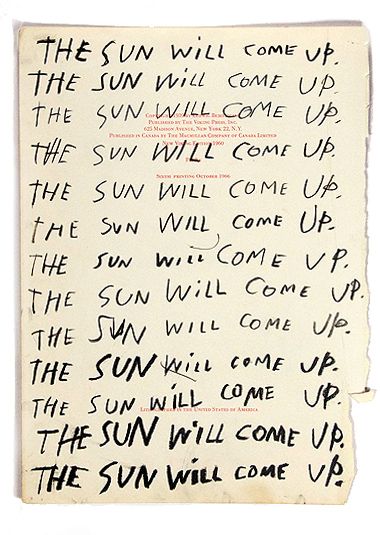 THE SUN WILL COME UP.
THE SUN WILL COME UP.
THE SUN WILL COME UP.
COPYRIGHT
PUBLISHED BY THE VIKING PRESS, INC.
625 MADISON AVENUE, NEW YORK 22, N.Y.
PUBLISHED IN CANADA BY THE MACMILLAN COMPANY OF CANADA LIMITED
NEW VIKING EDITION 1960
THE SUN WILL COME UP.
SIXTH PRINTING OCTOBER 1966
THE SUN WILL COME UP.
THE SUN WILL COME UP.
THE SUN WILL COME UP.
THE SUN WILL COME UP.
THE SUN WILL COME UP.
THE SUN WILL COME UP.
THE SUN WILL COME UP.
IN THE UNITED STATES OF AMERICA
THE SUN WILL COME UP.
THE SUN WILL COME UP.